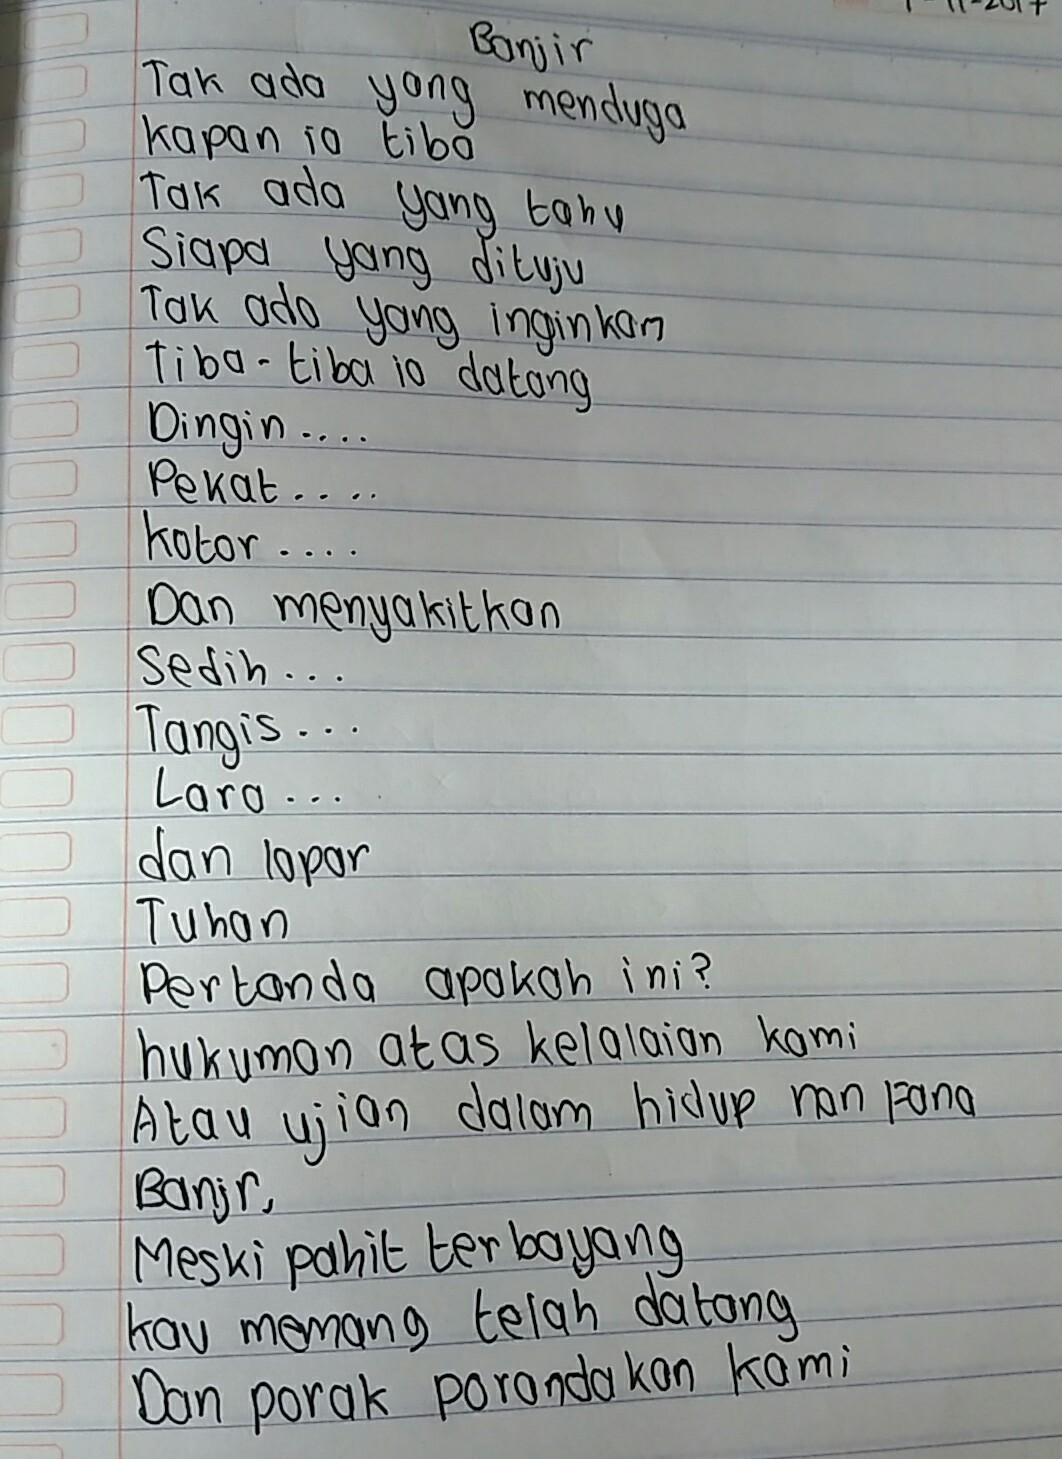 Banjir
Tak ada yang menduga
kapan ia tiba
Tak ada yang tahu
Siapa yang dituju
Tak ada yang inginkan
Tiba-tiba ia datang
Dingin....
Pekat....
kotor....
Dan menyakitkan
Sedih...
Tangis...
Lara...
dan lapar
Tuhan
Pertanda apakah ini?
hukuman atas kelalaian kami
Atau ujian dalam hidup nan Fana
Banjr,
Meski pahit terbayang
kau memang telah datang
Dan porak porandakan kami